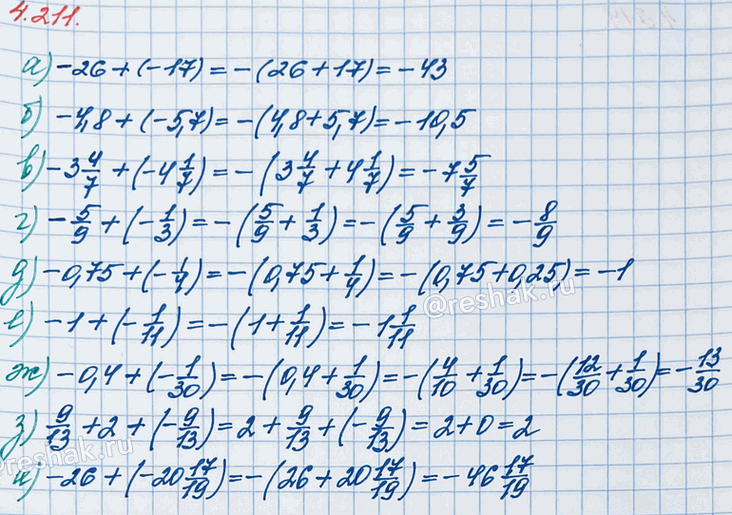 4.211.
а) -26 + (-17) = -(26 + 17) = -43
б) -4,8 + (-5,7) = -(4,8 + 5,7) = -10,5
в) -3 4/7 + (-4 1/7) = -(3 4/7 + 4 1/7) = -7 5/7
г) -5/9 + (-1/3) = -(5/9 + 1/3) = -(5/9 + 3/9) = -8/9
д) -0,75 + (-1/4) = -(0,75 + 1/4) = -(0,75 + 0,25) = -1
@reshak.ru
е) -1 + (-1/11) = -(1 + 1/11) = -1 1/11
ж) -0,4 + (-1/30) = -(0,4 + 1/30) = -(4/10 + 1/30) = -(12/30 + 1/30) = -13/30
з) 9/13 + 2 + (-9/13) = 2 + 9/13 + (-9/13) = 2 + 0 = 2
@reshak.ru
и) -26 + (-20 17/19) = -(26 + 20 17/19) = -46 17/19